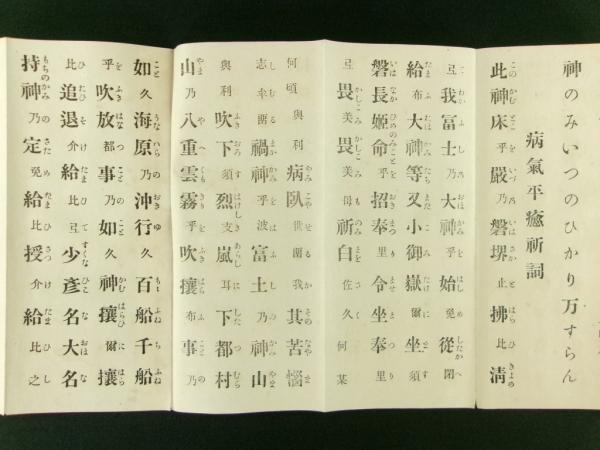 神のみいつのひかり万すらん
病氣平癒祈詞
此神床乎嚴乃磐堺止拂比淸
弖我富士乃大神乎始免從閇
給布大神等又小御嶽爾坐須
磐長姬命乎招奉里令坐奉里
弖畏美畏美母祈白佐久何某
何頃與利病臥世留我其苦惱
志牟留禍神乎波富士乃神山
與利吹下須烈支嵐耳下都村
山乃八重雲霧乎吹攘布事乃
如久海原乃沖行久百船千船
乎吹放都事乃如久神攘爾攘
比追退介給比弖少彥名大名
持神乃定免給比授介給比之